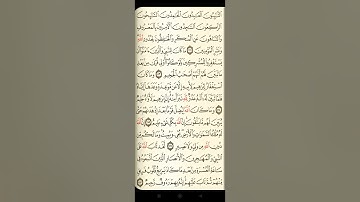 ٱلتَّٰٓئِبُونَ ٱلْعَٰبِدُونَ ٱلْحَٰمِدُونَ ٱلسَّٰٓئِحُونَ
ٱلرَّٰكِعُونَ ٱلسَّٰجِدُونَ ٱلْءَامِرُونَ بِٱلْمَعْرُوفِ
وَٱلنَّاهُونَ عَنِ ٱلْمُنكَرِ وَٱلْحَٰفِظُونَ لِحُدُودِ ٱللَّهِۗ
وَبَشِّرِ ٱلْمُؤْمِنِينَ ١١٢ مَا كَانَ لِلنَّبِيِّ وَٱلَّذِينَ ءَامَنُوٓاْ
أَن يَسْتَغْفِرُواْ لِلْمُشْرِكِينَ وَلَوْ كَانُوٓاْ أُوْلِي قُرْبَىٰ مِنۢ بَعْدِ
مَا تَبَيَّنَ لَهُمْ أَنَّهُمْ أَصْحَٰبُ ٱلْجَحِيمِ ١١٣ وَمَا كَانَ
ٱسْتِغْفَارُ إِبْرَٰهِيمَ لِأَبِيهِ إِلَّا عَن مَّوْعِدَةٍ وَعَدَهَآ إِيَّاهُ
فَلَمَّا تَبَيَّنَ لَهُۥٓ أَنَّهُۥ عَدُوٌّ لِّلَّهِ تَبَرَّأَ مِنْهُۚ إِنَّ إِبْرَٰهِيمَ لَأَوَّٰهٌ حَلِيمٌ
١١٤ وَمَا كَانَ ٱللَّهُ لِيُضِلَّ قَوْمًۢا بَعْدَ إِذْ هَدَىٰهُمْ حَتَّىٰ
يُبَيِّنَ لَهُم مَّا يَتَّقُونَۚ إِنَّ ٱللَّهَ بِكُلِّ شَيْءٍ عَلِيمٌ ١١٥ إِنَّ ٱللَّهَ
لَهُۥ مُلْكُ ٱلسَّمَٰوَٰتِ وَٱلْأَرْضِۖ يُحْيِۦ وَيُمِيتُۚ وَمَا لَكُم مِّن
دُونِ ٱللَّهِ مِن وَلِيٍّ وَلَا نَصِيرٍ ١١٦ لَّقَد تَّابَ ٱللَّهُ عَلَى
ٱلنَّبِيِّ وَٱلْمُهَٰجِرِينَ وَٱلْأَنصَارِ ٱلَّذِينَ ٱتَّبَعُوهُ فِي
سَاعَةِ ٱلْعُسْرَةِ مِنۢ بَعْدِ مَا كَادَ يَزِيغُ قُلُوبُ فَرِيقٍ
مِّنْهُمْ ثُمَّ تَابَ عَلَيْهِمْۚ إِنَّهُۥ بِهِمْ رَءُوفٌ رَّحِيمٌ ١١٧